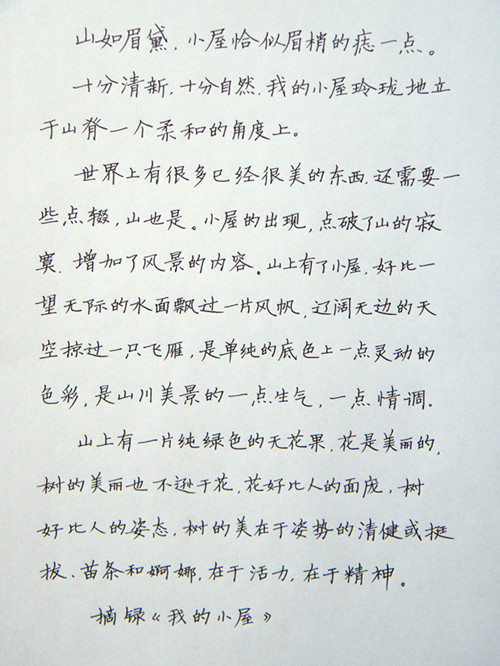 山如眉黛,小屋恰似眉梢的痣一点。
十分清新,十分自然,我的小屋玲珑地立
于山脊一个柔和的角度上。
世界上有很多已经很美的东西,还需要一
些点缀,山也是。小屋的出现,点破了山的寂
寞,增加了风景的内容。山上有了小屋,好比一
望无际的水面飘过一片风帆,辽阔无边的天
空掠过一只飞雁,是单纯的底色上一点灵动的
色彩,是山川美景的一点生气,一点情调.
山上有一片纯绿色的无花果,花是美丽的,
树的美丽也不逊于花,花好比人的面庞,树
好比人的姿态,树的美在于姿势的清健或挺
拔、苗条和婀娜,在于活力,在于精神。
摘录《我的小屋》